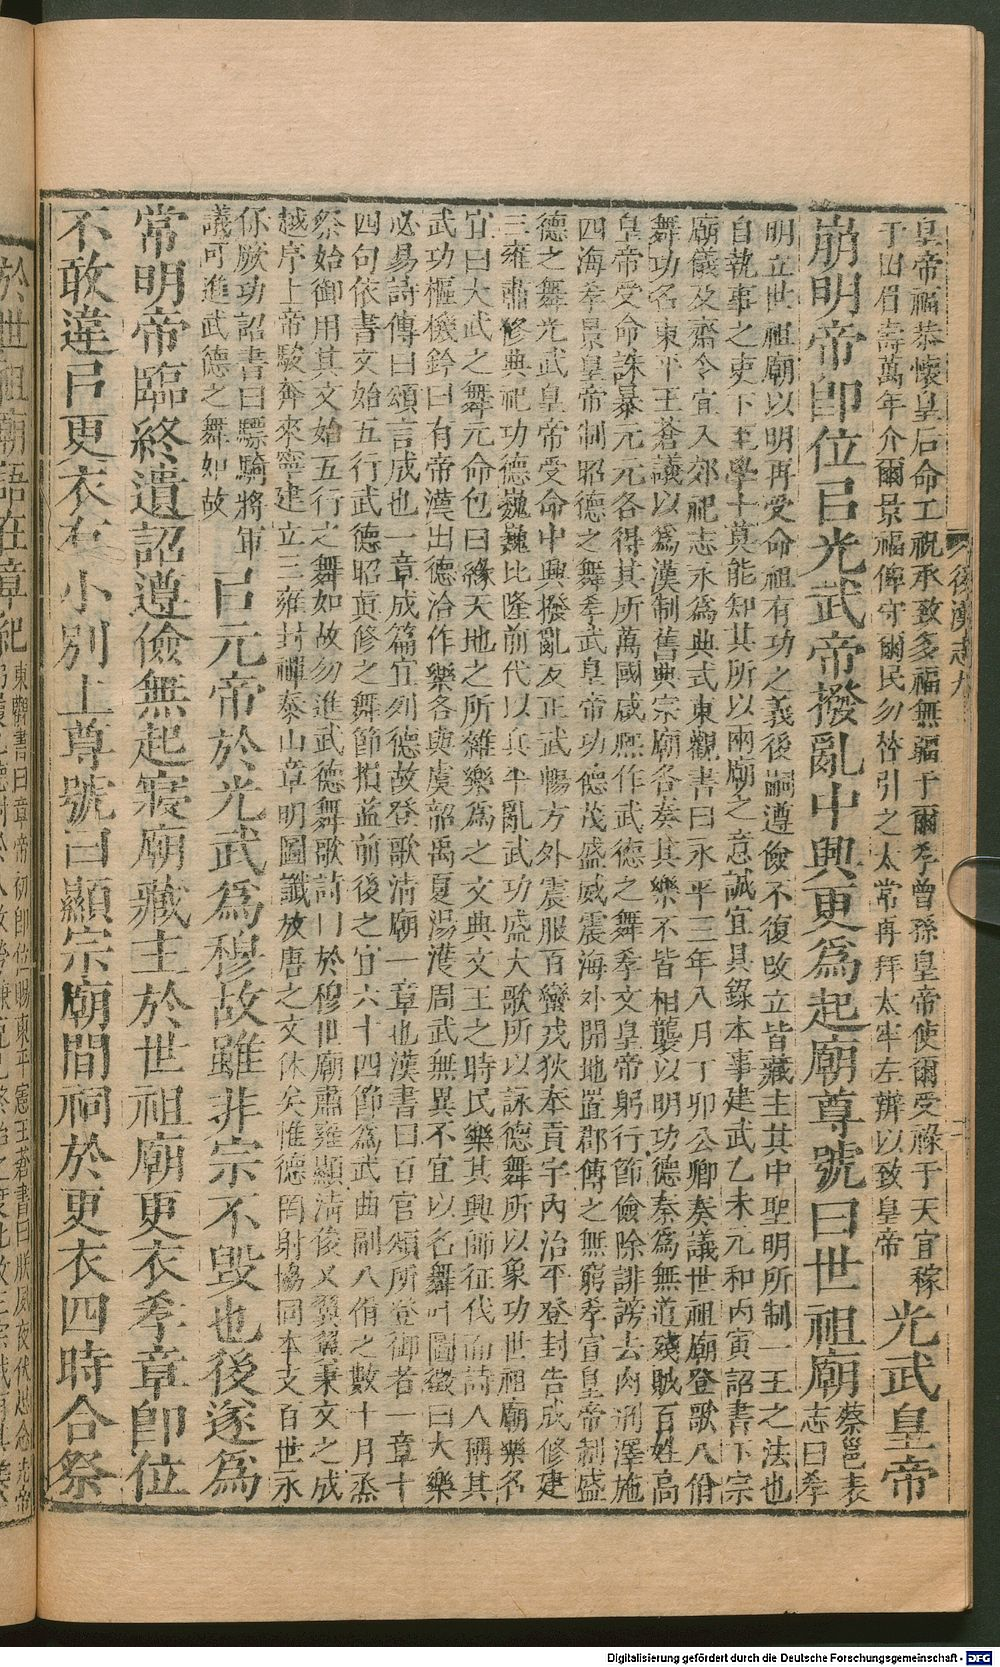 後漢志九
皇帝福恭懷皇后命工祝承致多福無疆于爾孝曾孫皇帝使爾受祿于天宜稼
于田眉壽萬年介爾景福俾守爾民勿替引之太常再拜太牢左辨以致皇帝
光武皇帝
崩明帝卽位㠯光武帝撥亂中興更爲起廟尊號曰世祖廟
蔡邕表
志曰孝
明立世祖廟以明再受命祖有功之義後嗣遵儉不復改立皆藏主其中聖明所制一王之法也
自執事之吏下至學士莫能知其所以兩廟之意誠宜具錄本事建武乙未元和丙寅詔書下宗
廟儀及齋令宜入郊祀志永爲典式東觀書曰永平三年八月丁卯公卿奏議世祖廟登歌八佾
舞功名東平王蒼議以爲漢制舊典宗廟各奏其樂不皆相襲以明功德秦爲無道殘賊百姓高
皇帝受命誅暴元元各得其所萬國咸熙作武德之舞孝文皇帝躬行節儉除誹謗去肉刑澤施
四海孝景皇帝制昭德之舞孝武皇帝功德茂盛威震海外開地置郡傳之無窮孝宣皇帝制盛
德之舞光武皇帝受命中興撥亂反正武暢方外震服百蠻戎狄奉貢宇內治平登封告成修建
三雍肅修典祀功德巍巍比隆前代以兵平亂武功盛大歌所以詠德舞所以象功世祖廟樂名
宜曰大武之舞元命包曰緣天地之所雜樂爲之文典文王之時民樂其興師征伐而詩人稱其
武功樞機鈐曰有帝漢出德洽作樂各與虞韶禹夏湯濩周武無異不宜以名舞叶圖徵曰大樂
必易詩傳曰頌言成也一章成篇宜列德故登歌清廟一章也漢書曰百官頌所登御者一章十
四句依書文始五行武德昭真修之舞節損益前後之宜六十四節爲武曲副八佾之數十月烝
祭始御用其文始五行之舞如故勿進武德舞歌詩曰於穆世廟肅雍顯清俊乂翼翼秉文之成
越序上帝駿奔來寧建立三雍封禪泰山章明圖讖放唐之文休矣惟德罔射協同本支百世永
保厥功詔書曰驃騎將軍
議可進武德之舞如故
㠯元帝於光武爲穆故雖非宗不毀也後遂爲
常明帝臨終遺詔遵儉無起寢廟藏主於世祖廟更衣孝章卽位
不敢違㠯更衣有小別上尊號曰顯宗廟間祠於更衣四時合祭
於世祖廟語在章紀
Digitalisierung gefördert durch die Deutsche Forschungsgemeinschaft - DFG